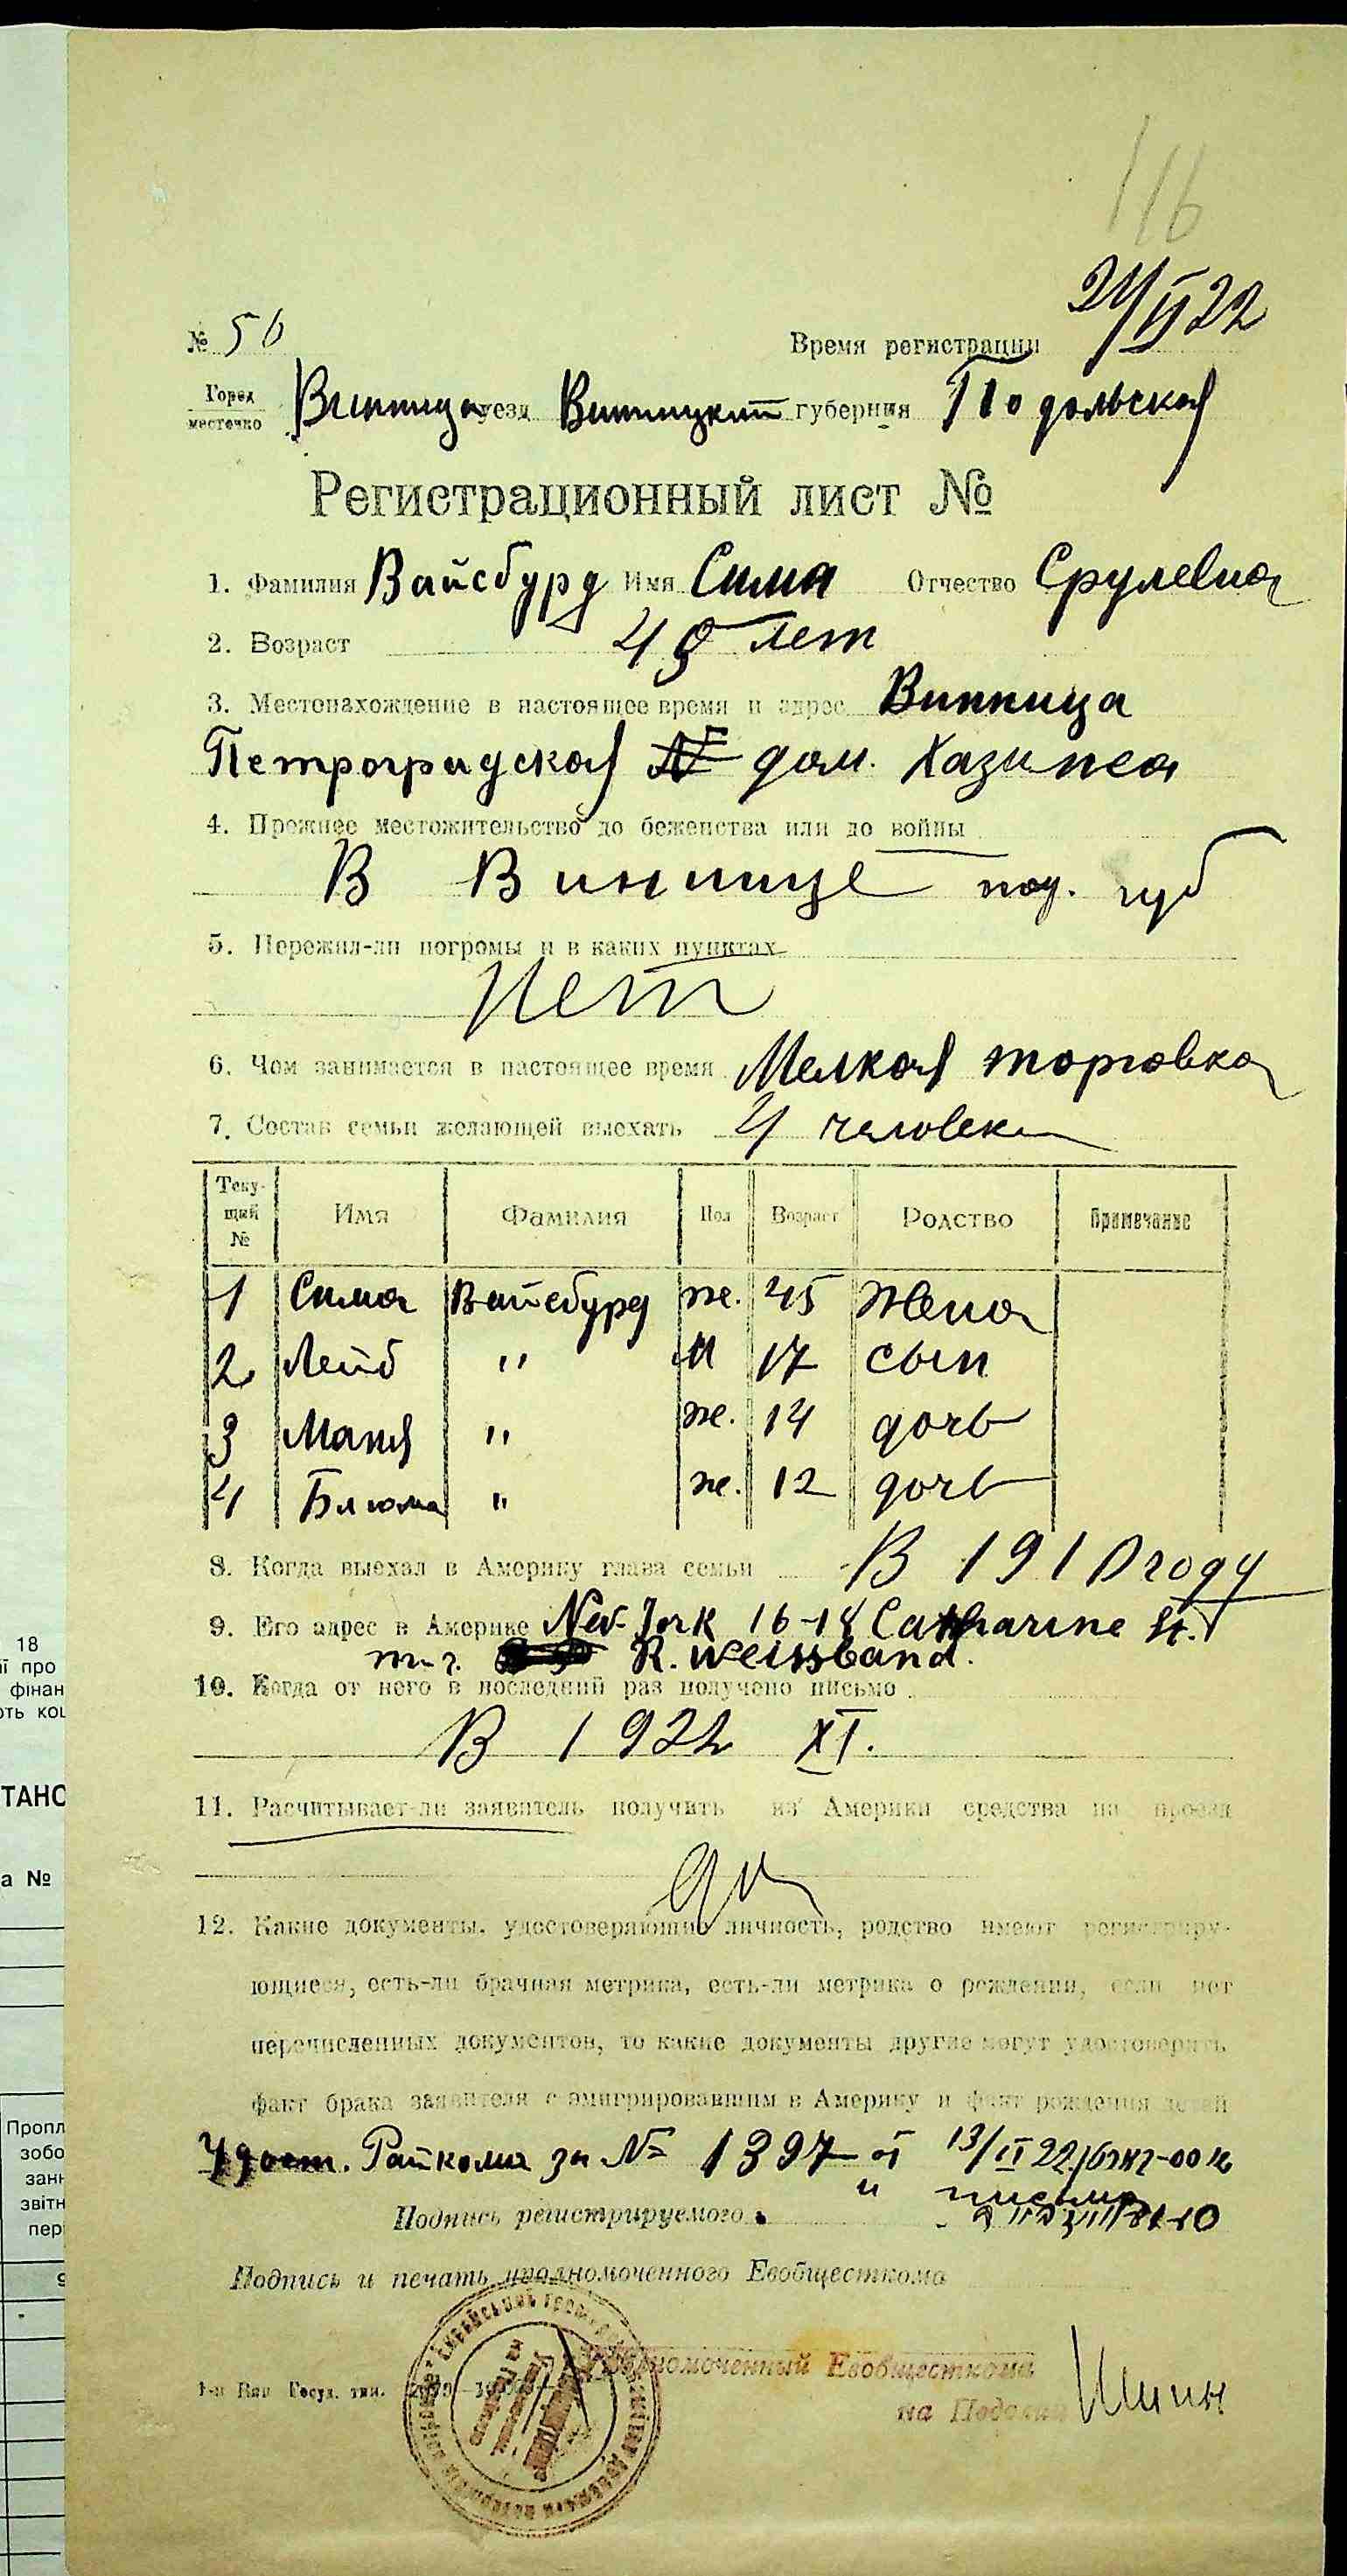 116
№ 56 Время регистрации 24/II 22
Город местечко Винница уезд Винницкий губерния Подольская
Регистрационный лист №
1. Фамилия Вайсбурд Имя Сима Отчество Срулевна
2. Возраст 45 лет
3. Местонахождение в настоящее время и адрес Винница
Петроградская № дом.
4. Прежнее местожительство до беженства или до войны
В Виннице под. губ
5. Пережил-ли погромы и в каких пунктах
Нет
6. Чем занимается в настоящее время Мелкая торговка
7. Состав семьи желающей выехать 4 человека
Текущий № Имя Фамилия Пол Возраст Родство Примечание
1 Сима Вайсбурд же. 45 Жена
2 Лейб " М 17 сын
3 Маня " же. 14 дочь
4 Блюма " же. 12 дочь
8. Когда выехал в Америку глава семьи В 1910 году
9. Его адрес в Америке New-Jork 16-18 Catharine St.
R. Weissband.
10. Когда от него в последний раз получено письмо
В 1922 XI.
11. Расчитывает-ли заявитель получить из Америки средства на проезд
да
12. Какие документы, удостоверяющие личность, родство имеют регистриру-
ющиеся, есть-ли брачная метрика, есть-ли метрика о рождении, если нет
перечисленных документов, то какие документы другие могут удостоверить
факт брака заявителя с эмигрировавшим в Америку и факт рождения детей
Удост. Райкома за № 1397 от 13/II 22
и письма
Подпись регистрируемого
Подпись и печать уполномоченного Евобщесткома
Уполномоченный Евобщесткома
1-я Вин Госуд. тип.
на Подолии
18
ії про
фінан
ТАНО
а №
Пропл
зобо
занн
звітн
пер
9